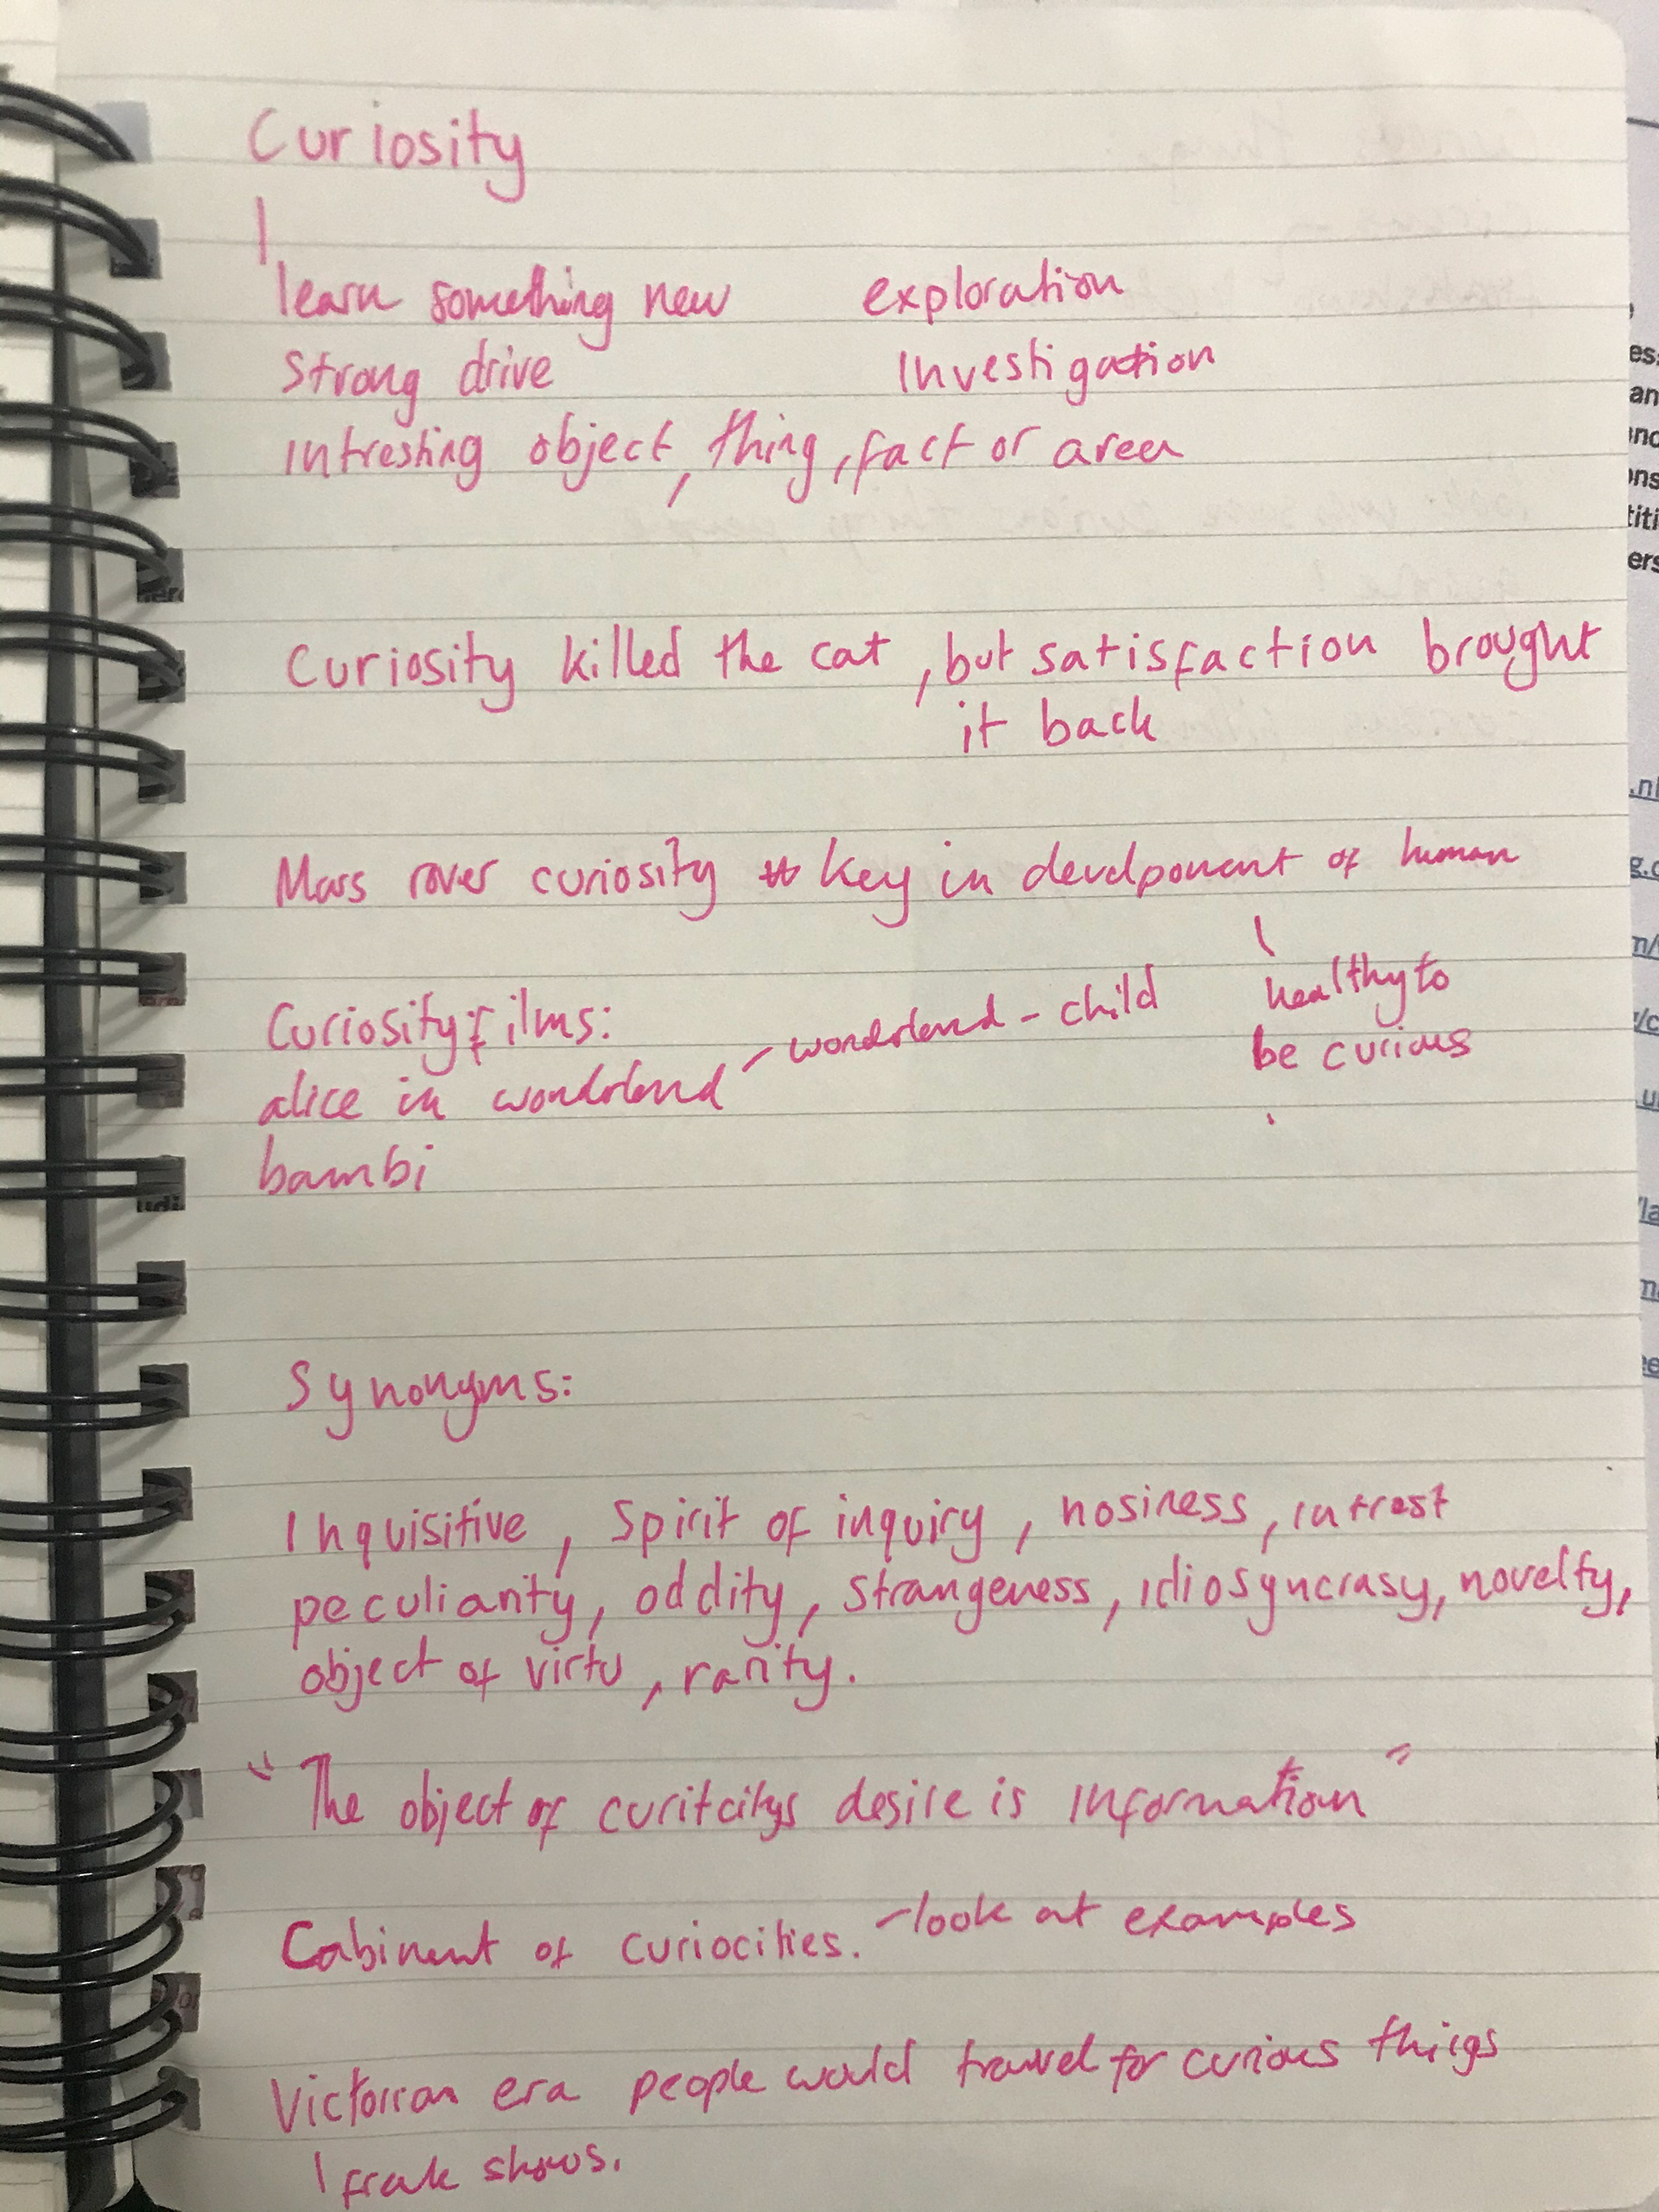 Curiosity
learn something new exploration
Strong drive Investigation
intresting object, thing, fact or area
Curiosity killed the cat, but satisfaction brought
it back
Mars rover curiosity key in development of human
healthy to
be curious
Curiosity films:
alice in wonderland - wonderland - child
bambi
Synonyms:
Inquisitive, spirit of inquiry, nosiness, intrest
peculiarity, oddity, strangeness, idiosyncrasy, novelty,
object of virtu, rarity.
"The object of curitcitys desire is information"
Cabinent of curiocities. - look at examples
Victorian era people would travel for curious things
freak shows.